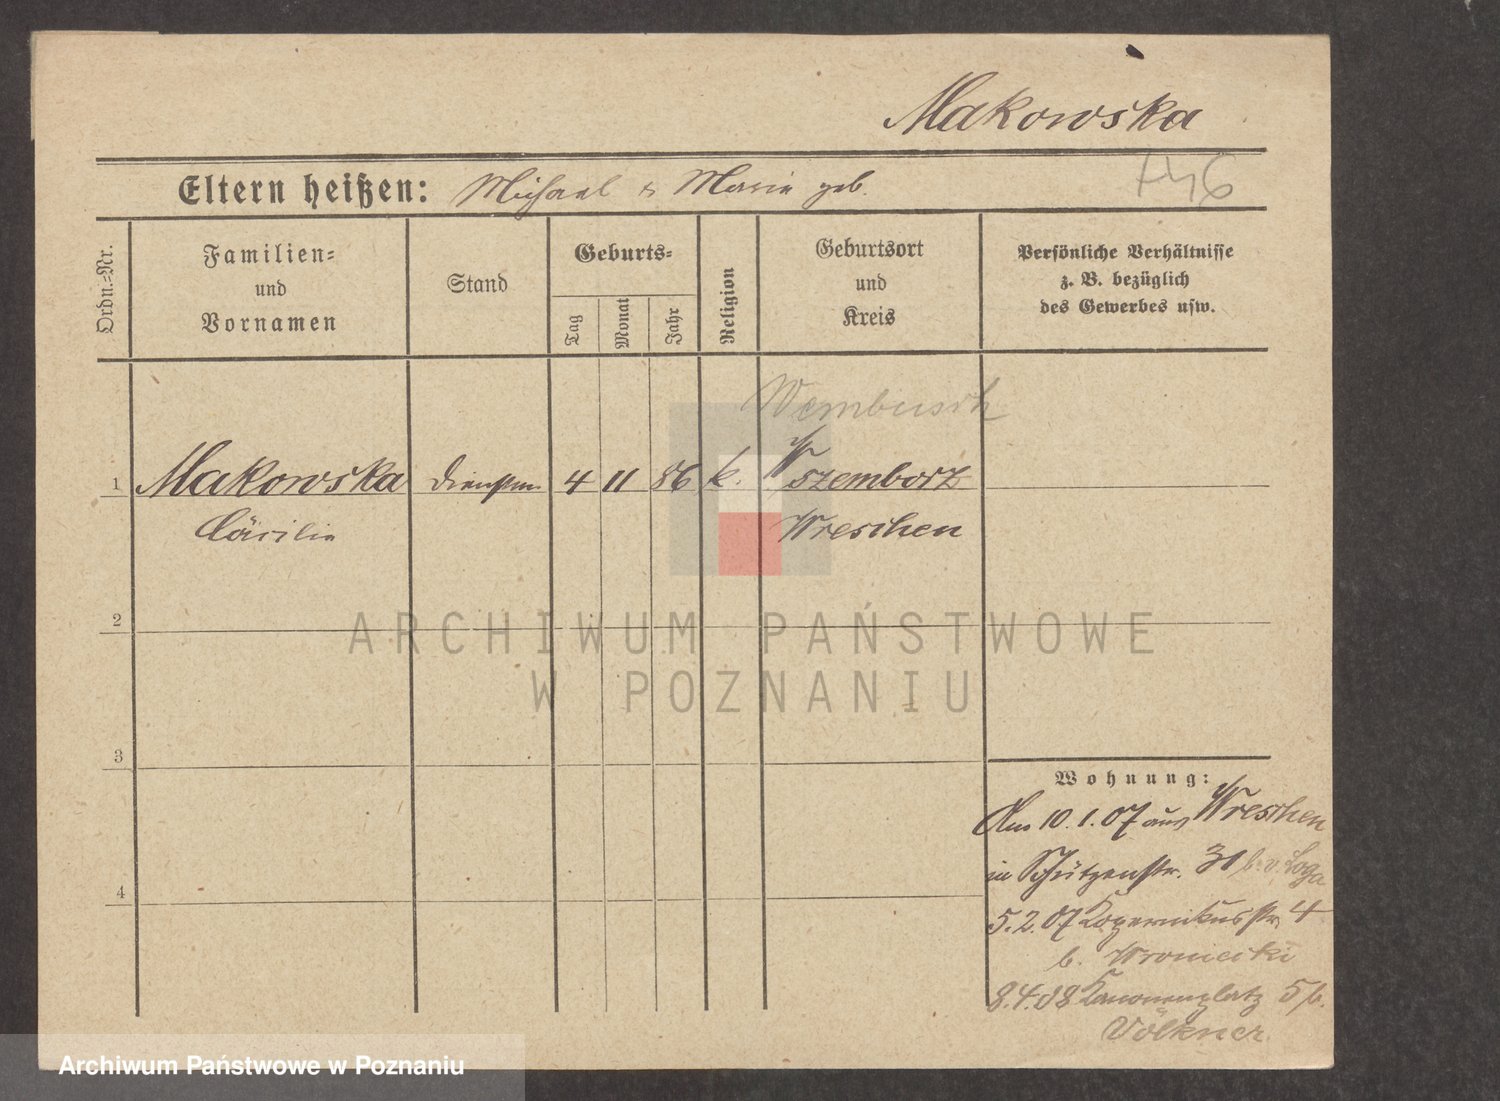 Makowska
Eltern heißen: Michael & Marie geb.
Ordn.-Nr.
Familien-
und
Vornamen
Stand
Geburts-
Tag
Monat
Jahr
Religion
Geburtsort
und
Kreis
Persönliche Verhältnisse
z. B. bezüglich
des Gewerbes usw.
Wembusch
1 Makowska Dienstm. 4 11 86 k. Wszemborz
Cäcilie Wreschen
2
ARCHIWUM PAŃSTWOWE
W POZNANIU
3
Wohnung:
Am 10.1.07 aus Wreschen
in Schützenstr. 31 b. v. Loga
4
5.2.07 Kopernikusstr. 4
b. Wroniecki
8.4.08 Kanonenplatz 5 b.
Völkner
Archiwum Państwowe w Poznaniu